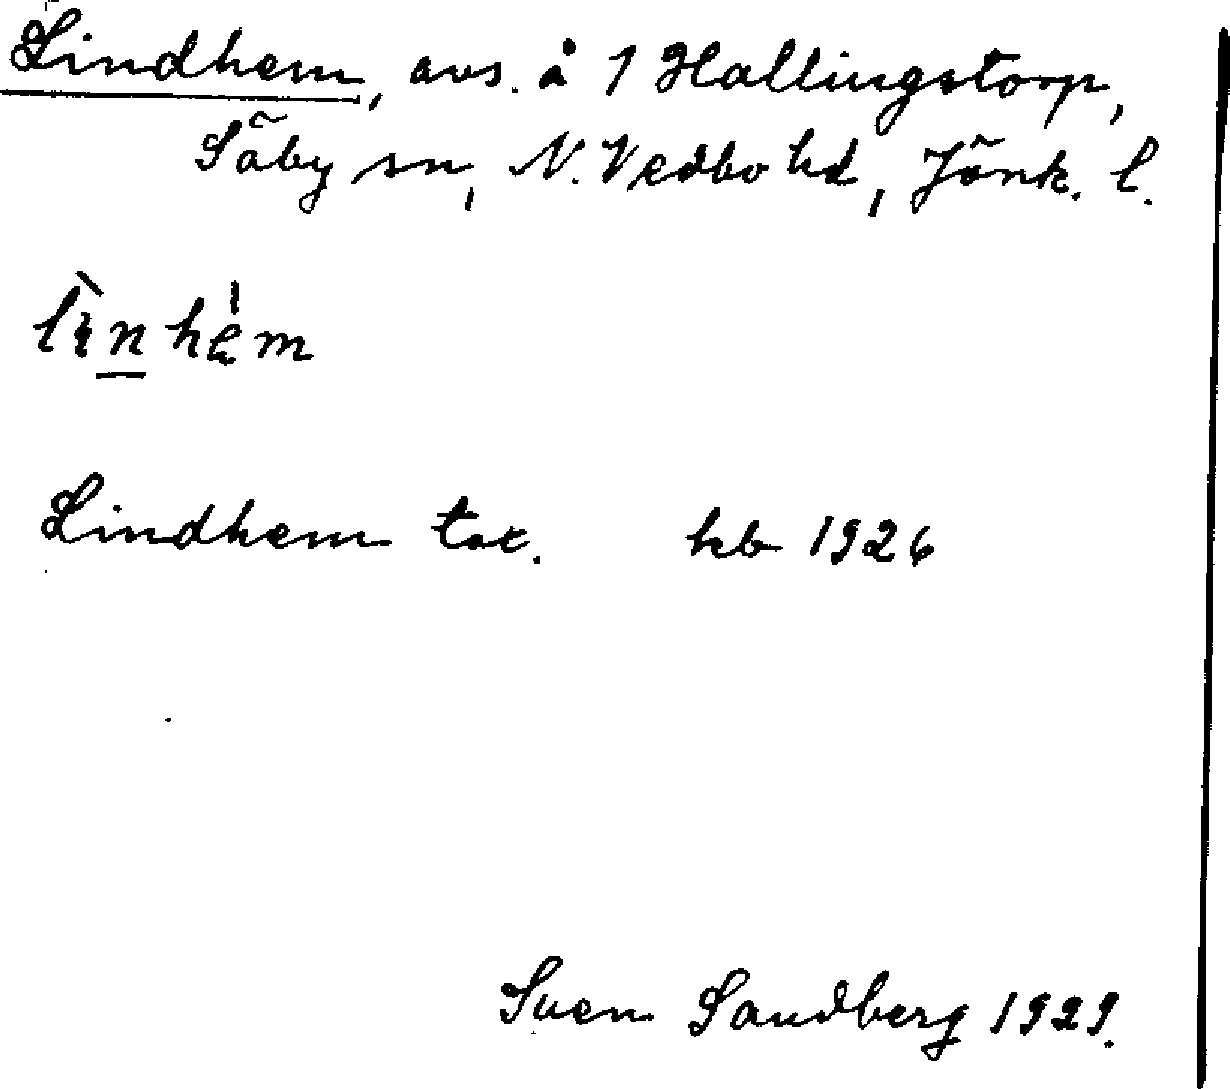 Lindhem, avs. å 1 Hallingstorp,
Säby sn, N. Vedbo hd, Jönk. l.
lìnhe̍m
Lindhem tot. kb 1926
Sven Sandberg 1929.